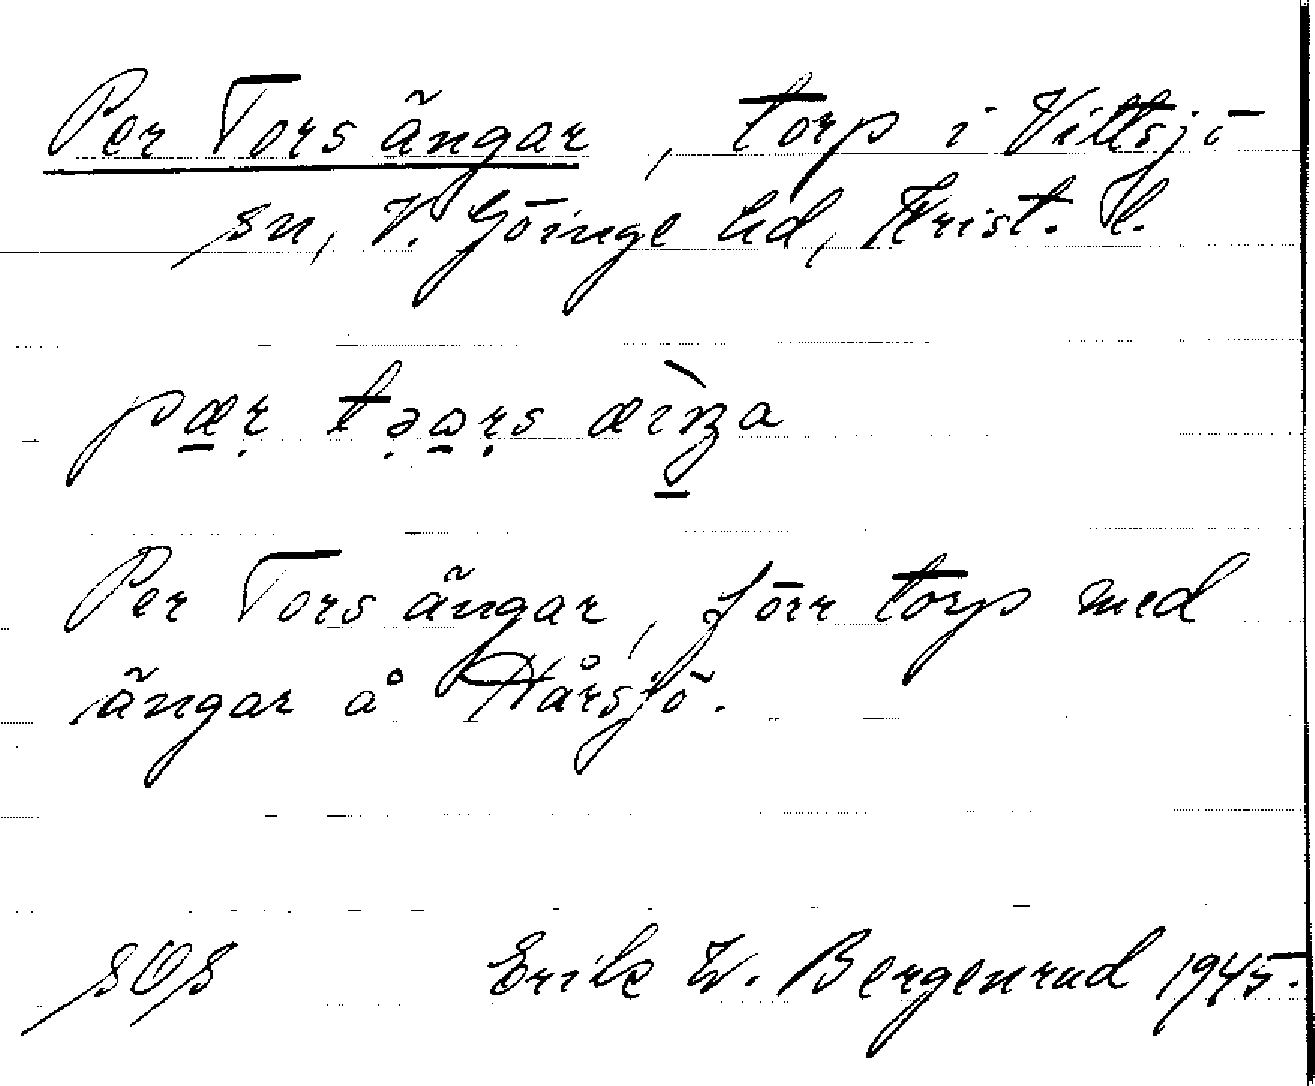 Per Tors ängar, torp i Vittsjö
sn, V. Göinge hd, Krist. l.
pæ̱ṛ tə̣o̱ṛs æìŋa
Per Tors ängar, förr torp med
ängar å Hårsjö.
SOS Erik W. Bergenrud 1945.